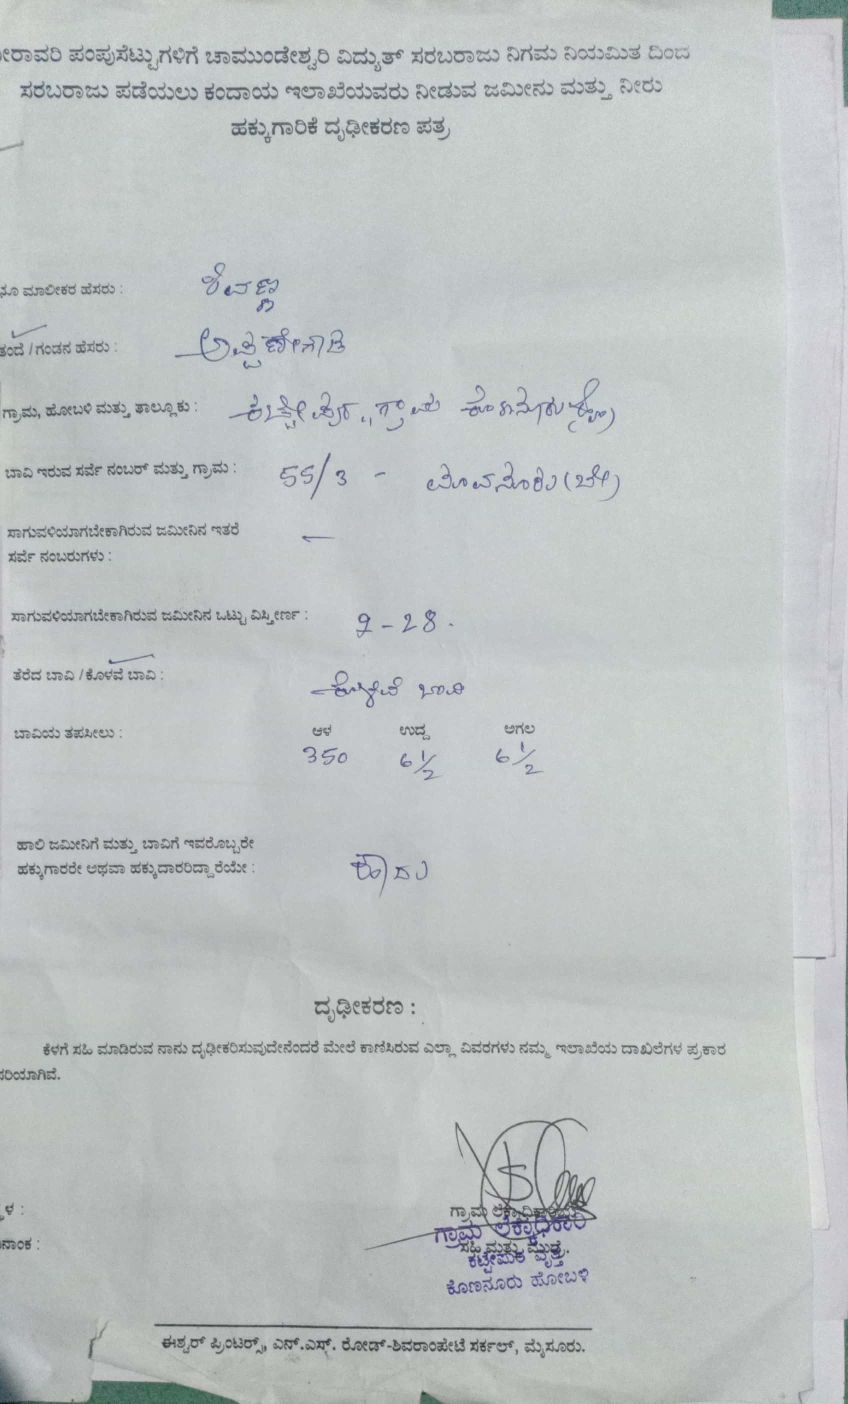 ನೀರಾವರಿ ಪಂಪುಸೆಟ್ಟುಗಳಿಗೆ ಚಾಮುಂಡೇಶ್ವರಿ ವಿದ್ಯುತ್ ಸರಬರಾಜು ನಿಗಮ ನಿಯಮಿತ ದಿಂದ
ಸರಬರಾಜು ಪಡೆಯಲು ಕಂದಾಯ ಇಲಾಖೆಯವರು ನೀಡುವ ಜಮೀನು ಮತ್ತು ನೀರು
ಹಕ್ಕುಗಾರಿಕೆ ದೃಢೀಕರಣ ಪತ್ರ
ಭೂ ಮಾಲೀಕರ ಹೆಸರು : ಶಿವಣ್ಣ
ತಂದೆ / ಗಂಡನ ಹೆಸರು :
ಗ್ರಾಮ, ಹೋಬಳಿ ಮತ್ತು ತಾಲ್ಲೂಕು : ಗ್ರಾಮ
ಬಾವಿ ಇರುವ ಸರ್ವೆ ನಂಬರ್ ಮತ್ತು ಗ್ರಾಮ : 55/3 -
ಸಾಗುವಳಿಯಾಗಬೇಕಾಗಿರುವ ಜಮೀನಿನ ಇತರೆ —
ಸರ್ವೆ ನಂಬರುಗಳು :
ಸಾಗುವಳಿಯಾಗಬೇಕಾಗಿರುವ ಜಮೀನಿನ ಒಟ್ಟು ವಿಸ್ತೀರ್ಣ : 2-28.
ತೆರೆದ ಬಾವಿ / ಕೊಳವೆ ಬಾವಿ : ಕೊಳವೆ ಬಾವಿ
ಬಾವಿಯ ತಪಸೀಲು : ಆಳ ಉದ್ದ ಅಗಲ
350 6 1/2 6 1/2
ಹಾಲಿ ಜಮೀನಿಗೆ ಮತ್ತು ಬಾವಿಗೆ ಇವರೊಬ್ಬರೇ
ಹಕ್ಕುಗಾರರೇ ಅಥವಾ ಹಕ್ಕುದಾರರಿದ್ದಾರೆಯೇ : ಹೌದು
ದೃಢೀಕರಣ :
ಕೆಳಗೆ ಸಹಿ ಮಾಡಿರುವ ನಾನು ದೃಢೀಕರಿಸುವುದೇನೆಂದರೆ ಮೇಲೆ ಕಾಣಿಸಿರುವ ಎಲ್ಲಾ ವಿವರಗಳು ನಮ್ಮ ಇಲಾಖೆಯ ದಾಖಲೆಗಳ ಪ್ರಕಾರ
ಸರಿಯಾಗಿವೆ.
ಸ್ಥಳ :
ಗ್ರಾಮ ಲೆಕ್ಕಾಧಿಕಾರಿಯ
ಗ್ರಾಮ ಲೆಕ್ಕಾಧಿಕಾರಿ
ದಿನಾಂಕ : ಸಹಿ ಮತ್ತು ಮುದ್ರೆ.
ವೃತ್ತ
ಕೊಣನೂರು ಹೋಬಳಿ
ಈಶ್ವರ್ ಪ್ರಿಂಟರ್ಸ್, ಎನ್.ಎಸ್. ರೋಡ್-ಶಿವರಾಂಪೇಟೆ ಸರ್ಕಲ್, ಮೈಸೂರು.